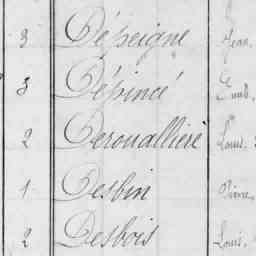 3 Dépeigne Jean
3 Dépincé
2 Derouallière Louis
1 Desbin Pierre
2 Desbois Louis